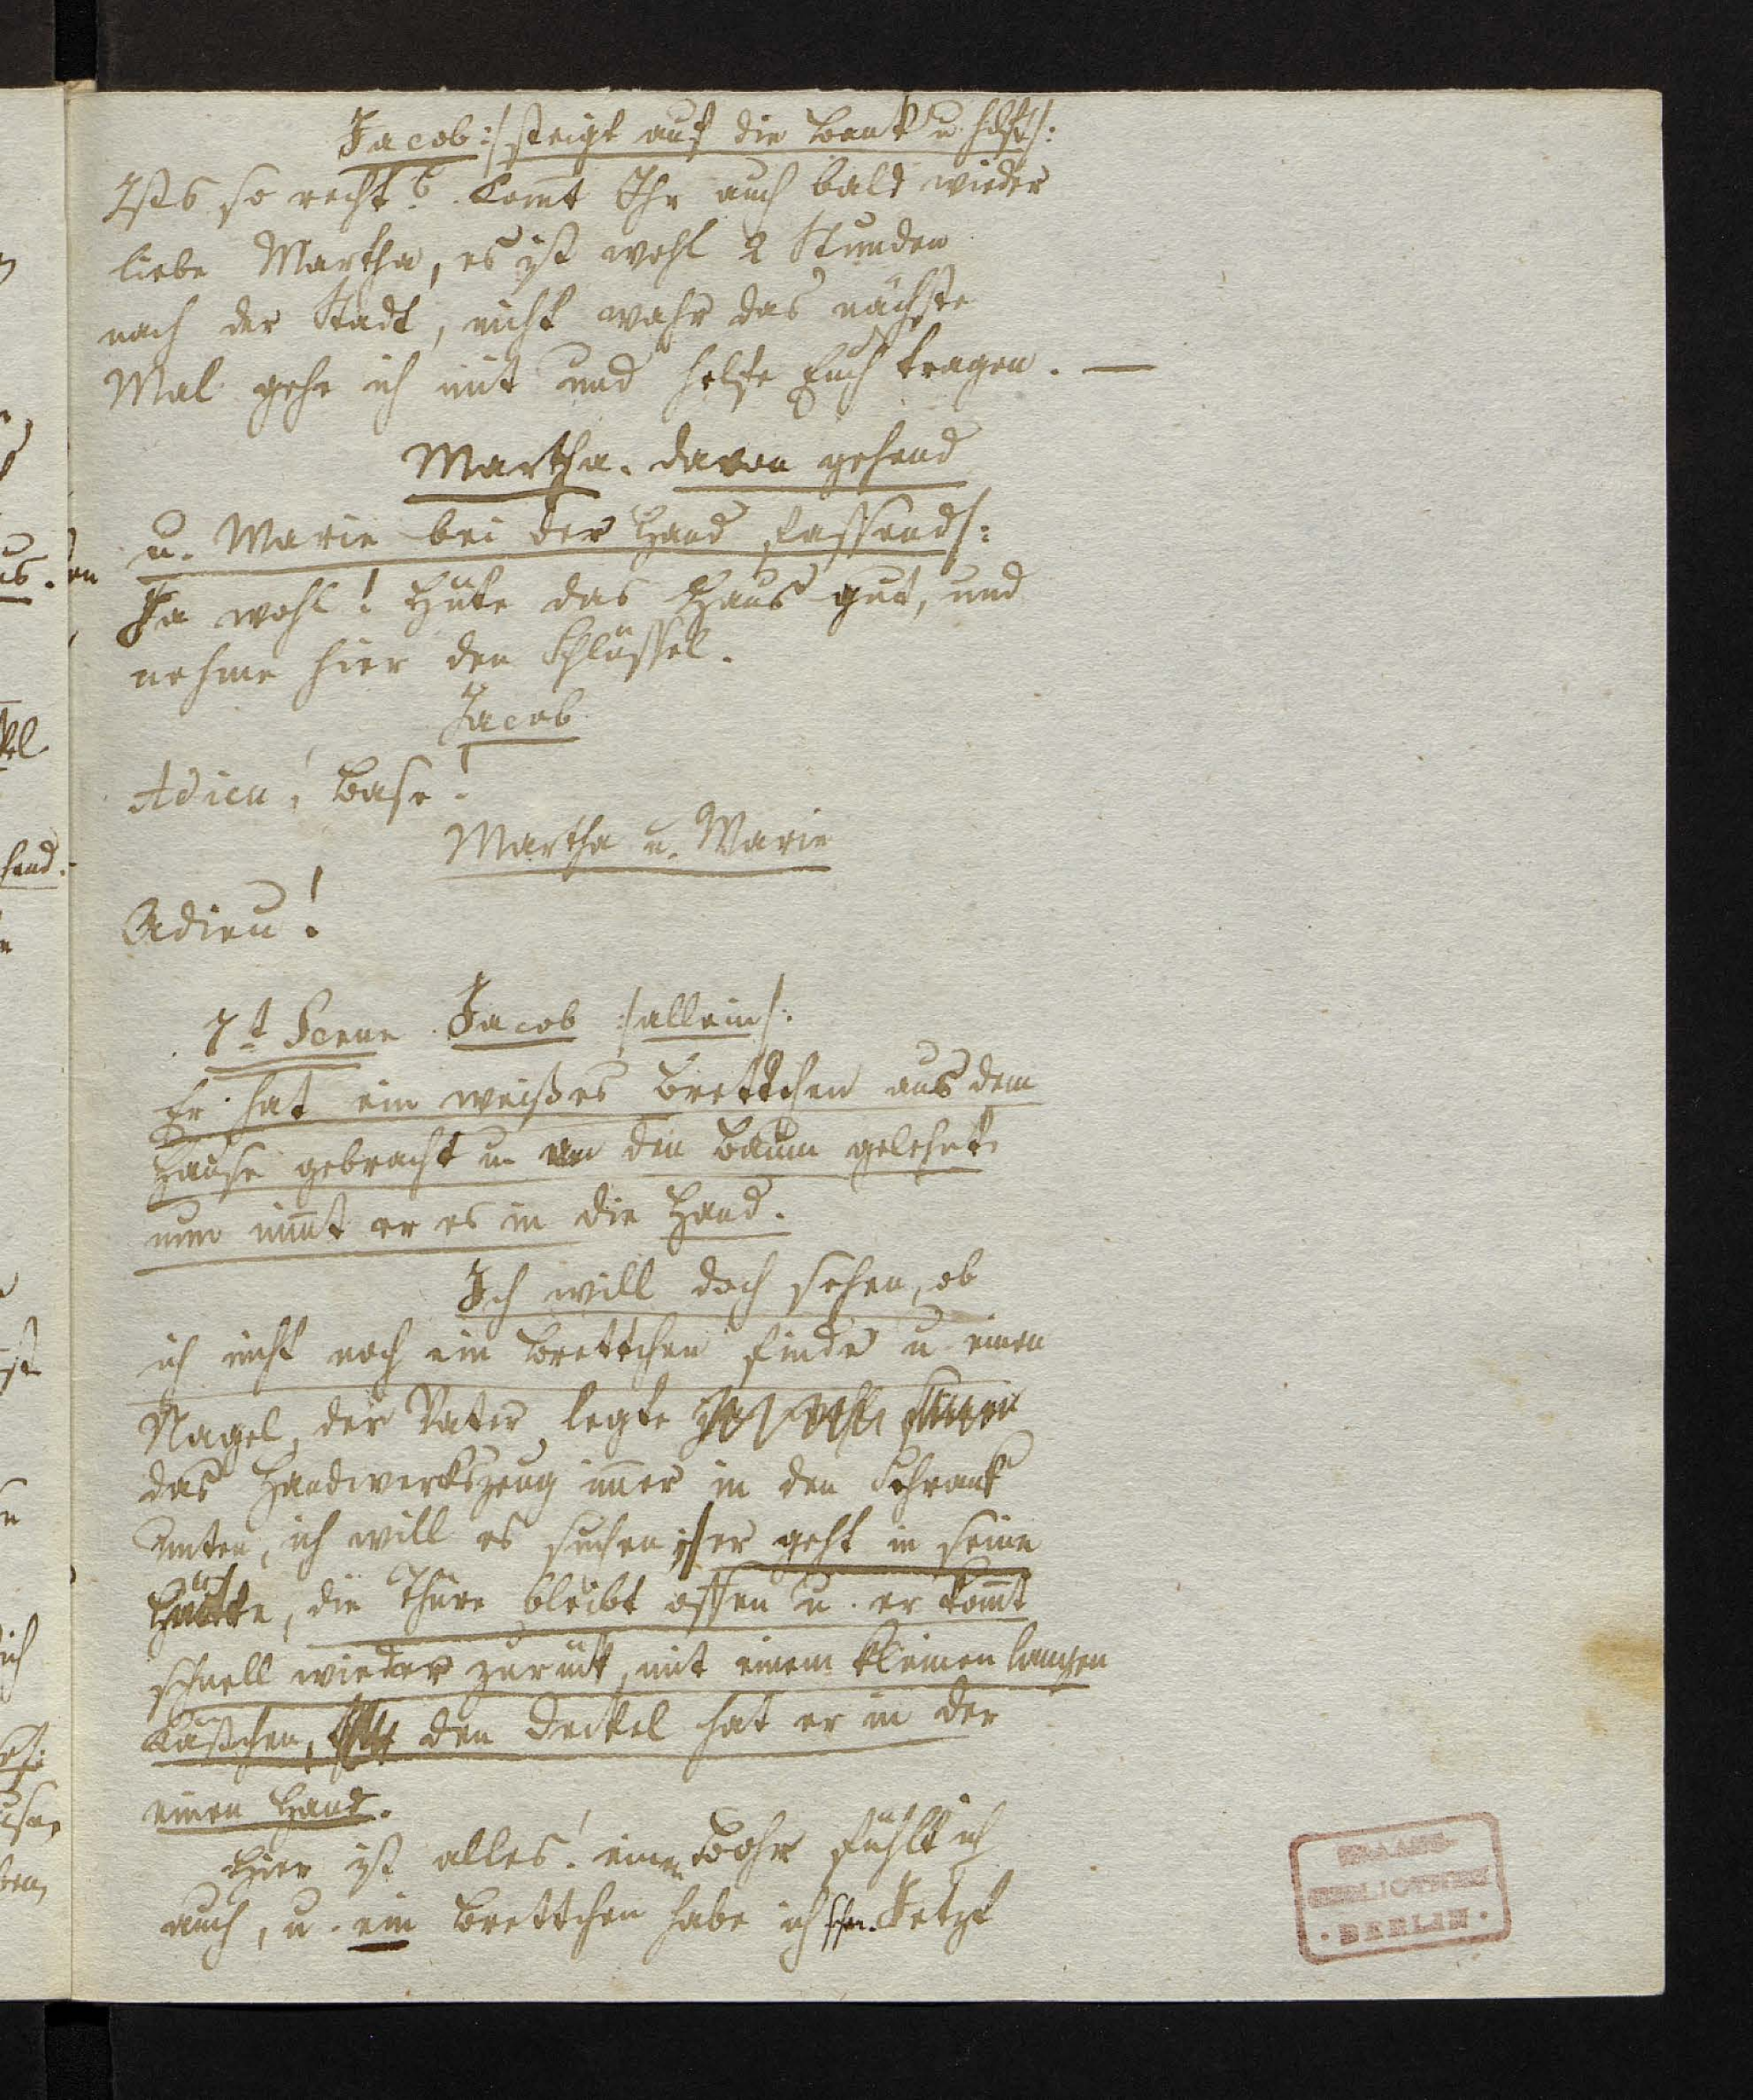 Jacob :/ steigt auf die Bank u. hilft /:
Ists so recht? Komt Ihr auch bald wieder
liebe Martha, es ist wohl 2 Stunden
nach der Stadt, nicht wahr das nächste
Mal gehe ich mit und helfe Euch tragen. —
Martha. davon gehend
u. Marie bei der Hand fassend /:
Ja wohl! Hüte das Haus gut, und
nehme hier den Schlüssel.
Jacob
Adieu, Base!
Martha u. Marie
Adieu!
7t Scene Jacob :/ allein /:
Er hat ein weißes Brettchen aus dem
Hause gebracht u. an den Baum gelehnt
nun nimt er es in die Hand.
Ich will doch sehen, ob
ich nicht noch ein Brettchen finde u. einen
Nagel, der Vater legte
das Handwerkszeug imer in den Schrank
unten, ich will es suchen :/ er geht in seine
Hütte, die Thüre bleibt offen u. er komt
schnell wieder zurück, mit einem kleinen langen
Kästchen, den Deckel hat er in der
einen Hand.
Hier ist alles! einen Bohr fühlt ich
auch, u. ein Brettchen habe ich schon. Jetzt
STAATS
BIBLIOTHEK
· BERLIN ·